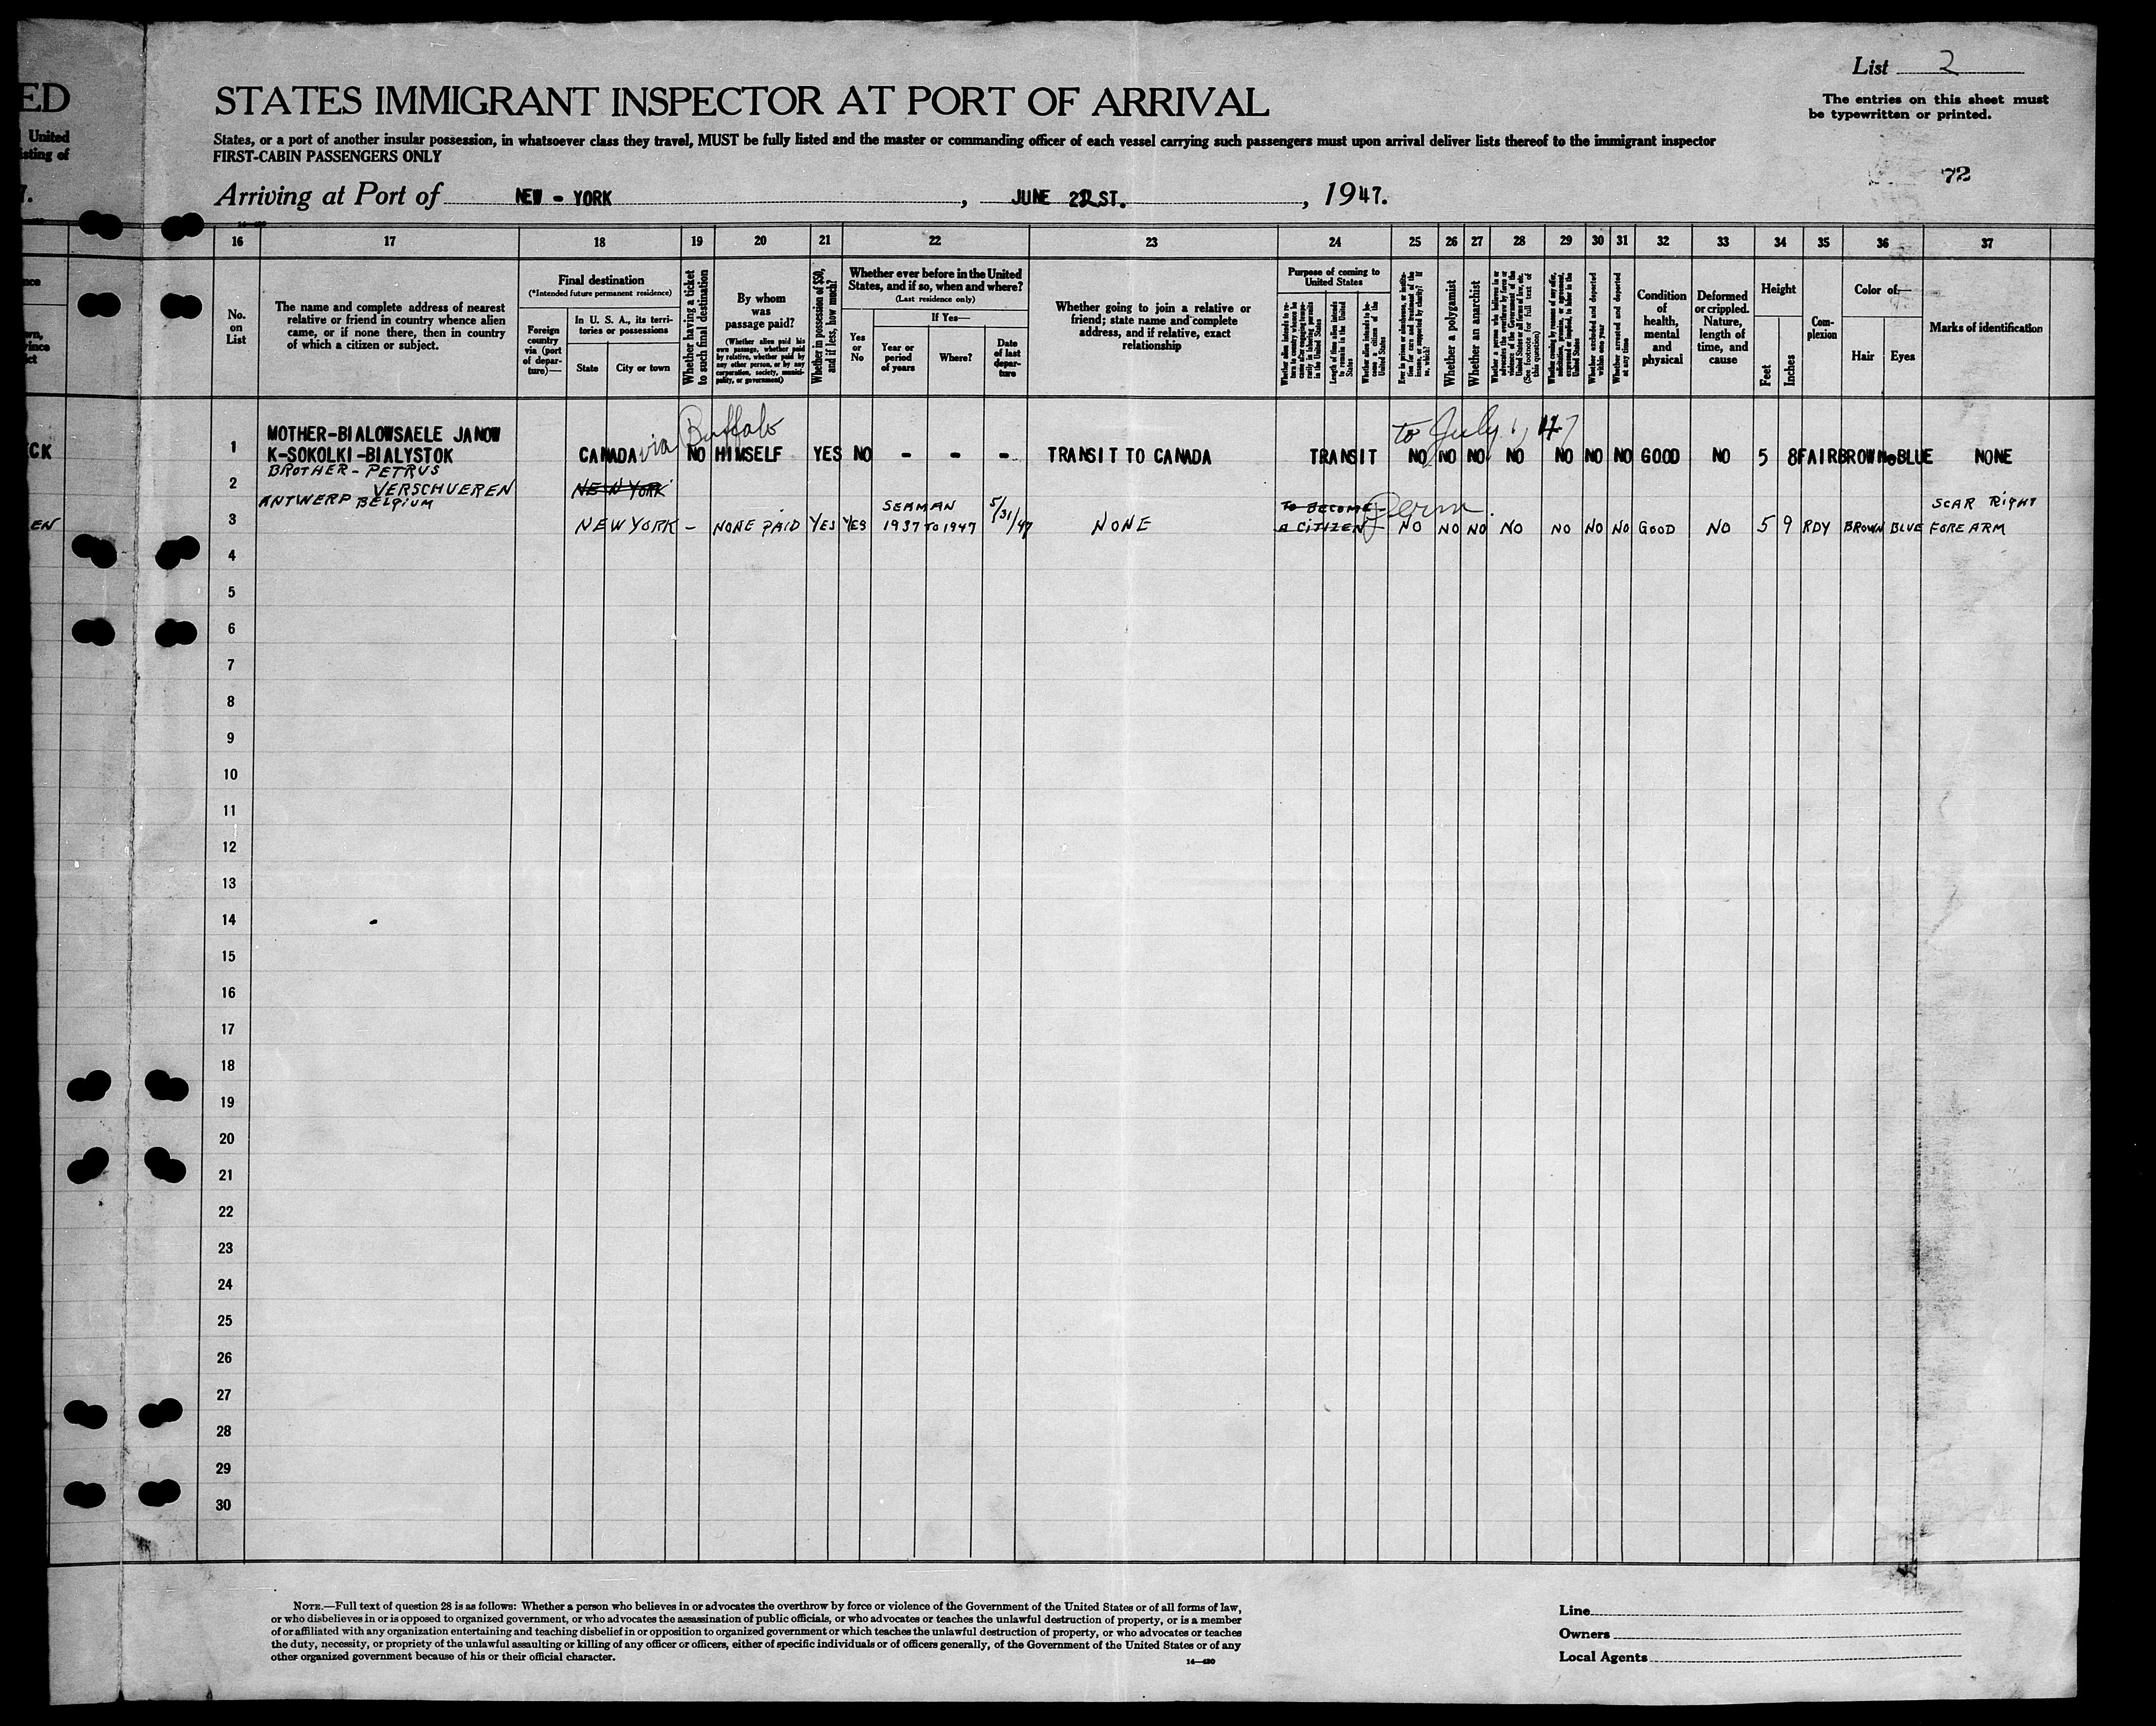 ED
United
sting of
7.
List 2
STATES IMMIGRANT INSPECTOR AT PORT OF ARRIVAL
The entries on this sheet must
be typewritten or printed.
States, or a port of another insular possession, in whatsoever class they travel, MUST be fully listed and the master or commanding officer of each vessel carrying such passengers must upon arrival deliver lists thereof to the immigrant inspector
FIRST-CABIN PASSENGERS ONLY
72
Arriving at Port of NEW - YORK, JUNE 22ST., 1947.
16 17 18 19 20 21 22 23 24 25 26 27 28 29 30 31 32 33 34 35 36 37
No.
on
List
The name and complete address of nearest
relative or friend in country whence alien
came, or if none there, then in country
of which a citizen or subject.
Final destination
(*Intended future permanent residence)
Foreign
country
via (port
of depar-
ture)—
In U. S. A., its terri-
tories or possessions
State
City or town
Whether having a ticket
to such final destination
By whom
was
passage paid?
(Whether alien paid his
own passage, whether paid
by relative, whether paid by
any other person, or by any
corporation, society, munici-
pality, or government)
Whether in possession of $50,
and if less, how much?
Whether ever before in the United
States, and if so, when and where?
(Last residence only)
Yes
or
No
If Yes—
Year or
period
of years
Where?
Date
of last
depar-
ture
Whether going to join a relative or
friend; state name and complete
address, and if relative, exact
relationship
Purpose of coming to
United States
Length of time alien intends
to remain in the United
States
Whether alien intends to be-
come a citizen of the
United States
Whether a polygamist
Whether an anarchist
Whether excluded and deported
within one year
Whether arrested and deported
at any time
Condition
of
health,
mental
and
physical
Deformed
or crippled.
Nature,
length of
time, and
cause
Height
Feet
Inches
Com-
plexion
Color of—
Hair
Eyes
Marks of identification
CK
1 MOTHER-BIALOWSAELE JANOW
K-SOKOLKI-BIALYSTOK CANADA via Buffalo NO HIMSELF YES NO - - - TRANSIT TO CANADA TRANSIT to July 1, 47 NO NO NO NO NO NO NO GOOD NO 5 8 FAIR BROWN BLUE NONE
2 BROTHER - PETRUS
VERSCHUEREN NEW YORK
ANTWERP BELGIUM
EN
3 NEW YORK - NONE PAID YES YES SEAMAN
1937 TO 1947 5/31/47 NONE TO BECOME
A CITIZEN Perm. NO NO NO NO NO NO NO GOOD NO 5 9 RDY BROWN BLUE SCAR RIGHT
FOREARM
4
5
6
7
8
9
10
11
12
13
14
15
16
17
18
19
20
21
22
23
24
25
26
27
28
29
30
NOTE.—Full text of question 28 is as follows: Whether a person who believes in or advocates the overthrow by force or violence of the Government of the United States or of all forms of law,
or who disbelieves in or is opposed to organized government, or who advocates the assassination of public officials, or who advocates or teaches the unlawful destruction of property, or is a member
of or affiliated with any organization entertaining and teaching disbelief in or opposition to organized government or which teaches the unlawful destruction of property, or who advocates or teaches
the duty, necessity, or propriety of the unlawful assaulting or killing of any officer or officers, either of specific individuals or of officers generally, of the Government of the United States or of any
other organized government because of his or their official character.
14—430
Line
Owners
Local Agents